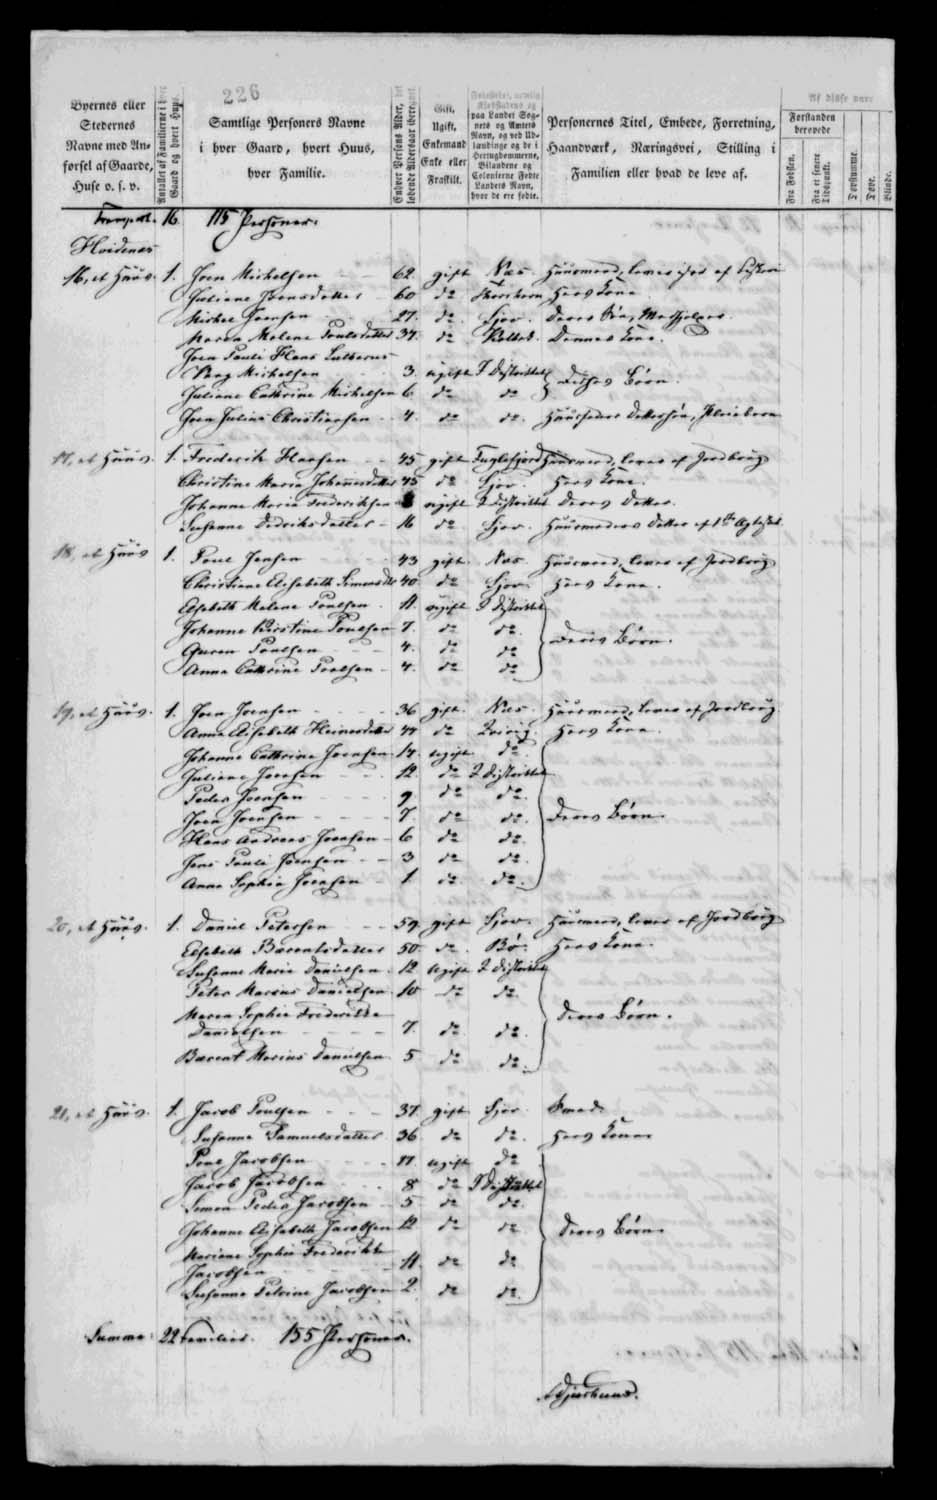 226
Byernes eller
Stedernes
Navne med An-
førsel af Gaarde,
Huse o. s. v.
Antallet af Familierne i hver
Gaard og hvert Huus.
Samtlige Personers Navne
i hver Gaard, hvert Huus,
hver Familie.
Enhver Persons Alder, det
løbende Aldersaar iberegnet.
Gift,
Ugift,
Enkemand
Enke eller
Fraskilt.
Fødested, nemlig
Kjøbstadens og
paa Landet Sog-
nets og Amtets
Navn, og ved Ud-
lændinge og de i
Hertugdømmerne,
Bilandene og
Colonierne Fødte
Landets Navn,
hvor de ere fødte.
Personernes Titel, Embede, Forretning,
Haandværk, Næringsvei, Stilling i
Familien eller hvad de leve af.
Af disse var:
Forstanden
berøvede
Fra Fødslen.
Fra et senere
Tidspunkt.
Døvstumme.
Døve.
Blinde.
Transport. 16 115 Personer.
Hvidenæs
16, et Huus. 1. Joen Michelsen 62. gift Næs. Huusmand, lever af Fiskeri
Juliane Joensdatter 60 do Thorshavn Hans Kone
Michel Joensen 27. do Sjov. Deres Søn, Matros
Maria Malene Poulsdatter 37. do Dennes Kone.
Joen Pauli Hans Lutherus
Berg Michelsen 3. ugift I Distriktet Disses Børn.
Juliane Cathrine Michelsen 6 do do
Joen Julius Christiansen 4. do do. Huusfaders Dattersøn, Pleiebarn
17, et Huus. 1. Frederik Hansen 45 gift Fuglefjord Huusmand, lever af Jordbrug
Christine Maria Johannesdatter 45 do Sjov. Hans Kone.
Johanne Maria Frederiksen ugift I Distriktet Deres Datter.
Susanne Diedriksdatter 16 do Sjov. Huusmoders Datter af 1ste Ægteskab
18, et Huus 1. Poul Jensen 43 gift. Næs. Huusmand, lever af Jordbrug
Christiane Elisabeth Simonsdtr 40 do Sjov. Hans Kone.
Elsebeth Malene Poulsen 11. ugift I Distriktet
Johanne Kirstine Poulsen 7. do do. Deres Børn.
Guren Poulsen 4. do do
Anna Cathrine Poulsen 4. do do
19, et Huus. 1. Joen Joensen 36 gift. Næs. Huusmand, lever af Jordbrug
Anna Elisabeth Heinesdatter 44 do Hans Kone.
Johanne Cathrine Joensen 14. ugift do.
Juliane Joensen 12. do I Distriktet
Peder Joensen 9. do do.
Joen Joensen 7. do do. Deres Børn.
Hans Andreas Joensen 6 do do.
Jens Pauli Joensen 3 do do.
Anna Sophia Joensen 1. do do.
20, et Huus. 1. Daniel Petersen 59. gift Sjov. Huusmand, lever af Jordbrug
Elsebeth Barentsdatter 50 do. Bø. Hans Kone.
Susanne Maria Danielsen 12 ugift I Distriktet
Peter Marius Danielsen 10 do do.
Maren Sophie Frederikke Deres Børn.
Danielsen 7. do do.
Barent Marius Danielsen 5 do do.
21, et Huus. 1. Jacob Poulsen 37 gift Sjov Smed.
Susanne Samuelsdatter 36 do do. Hans Kone
Poul Jacobsen 11 ugift do
Jacob Jacobsen 8 do I Distriktet
Simon Peder Jacobsen 5 do do.
Johanne Elisabeth Jacobsen 12 do do. Deres Børn.
Mariane Sophie Frederikke
Jacobsen 11. do do
Susanne Petrine Jacobsen 2 do do.
Summa 22 Familier. 155 Personer.